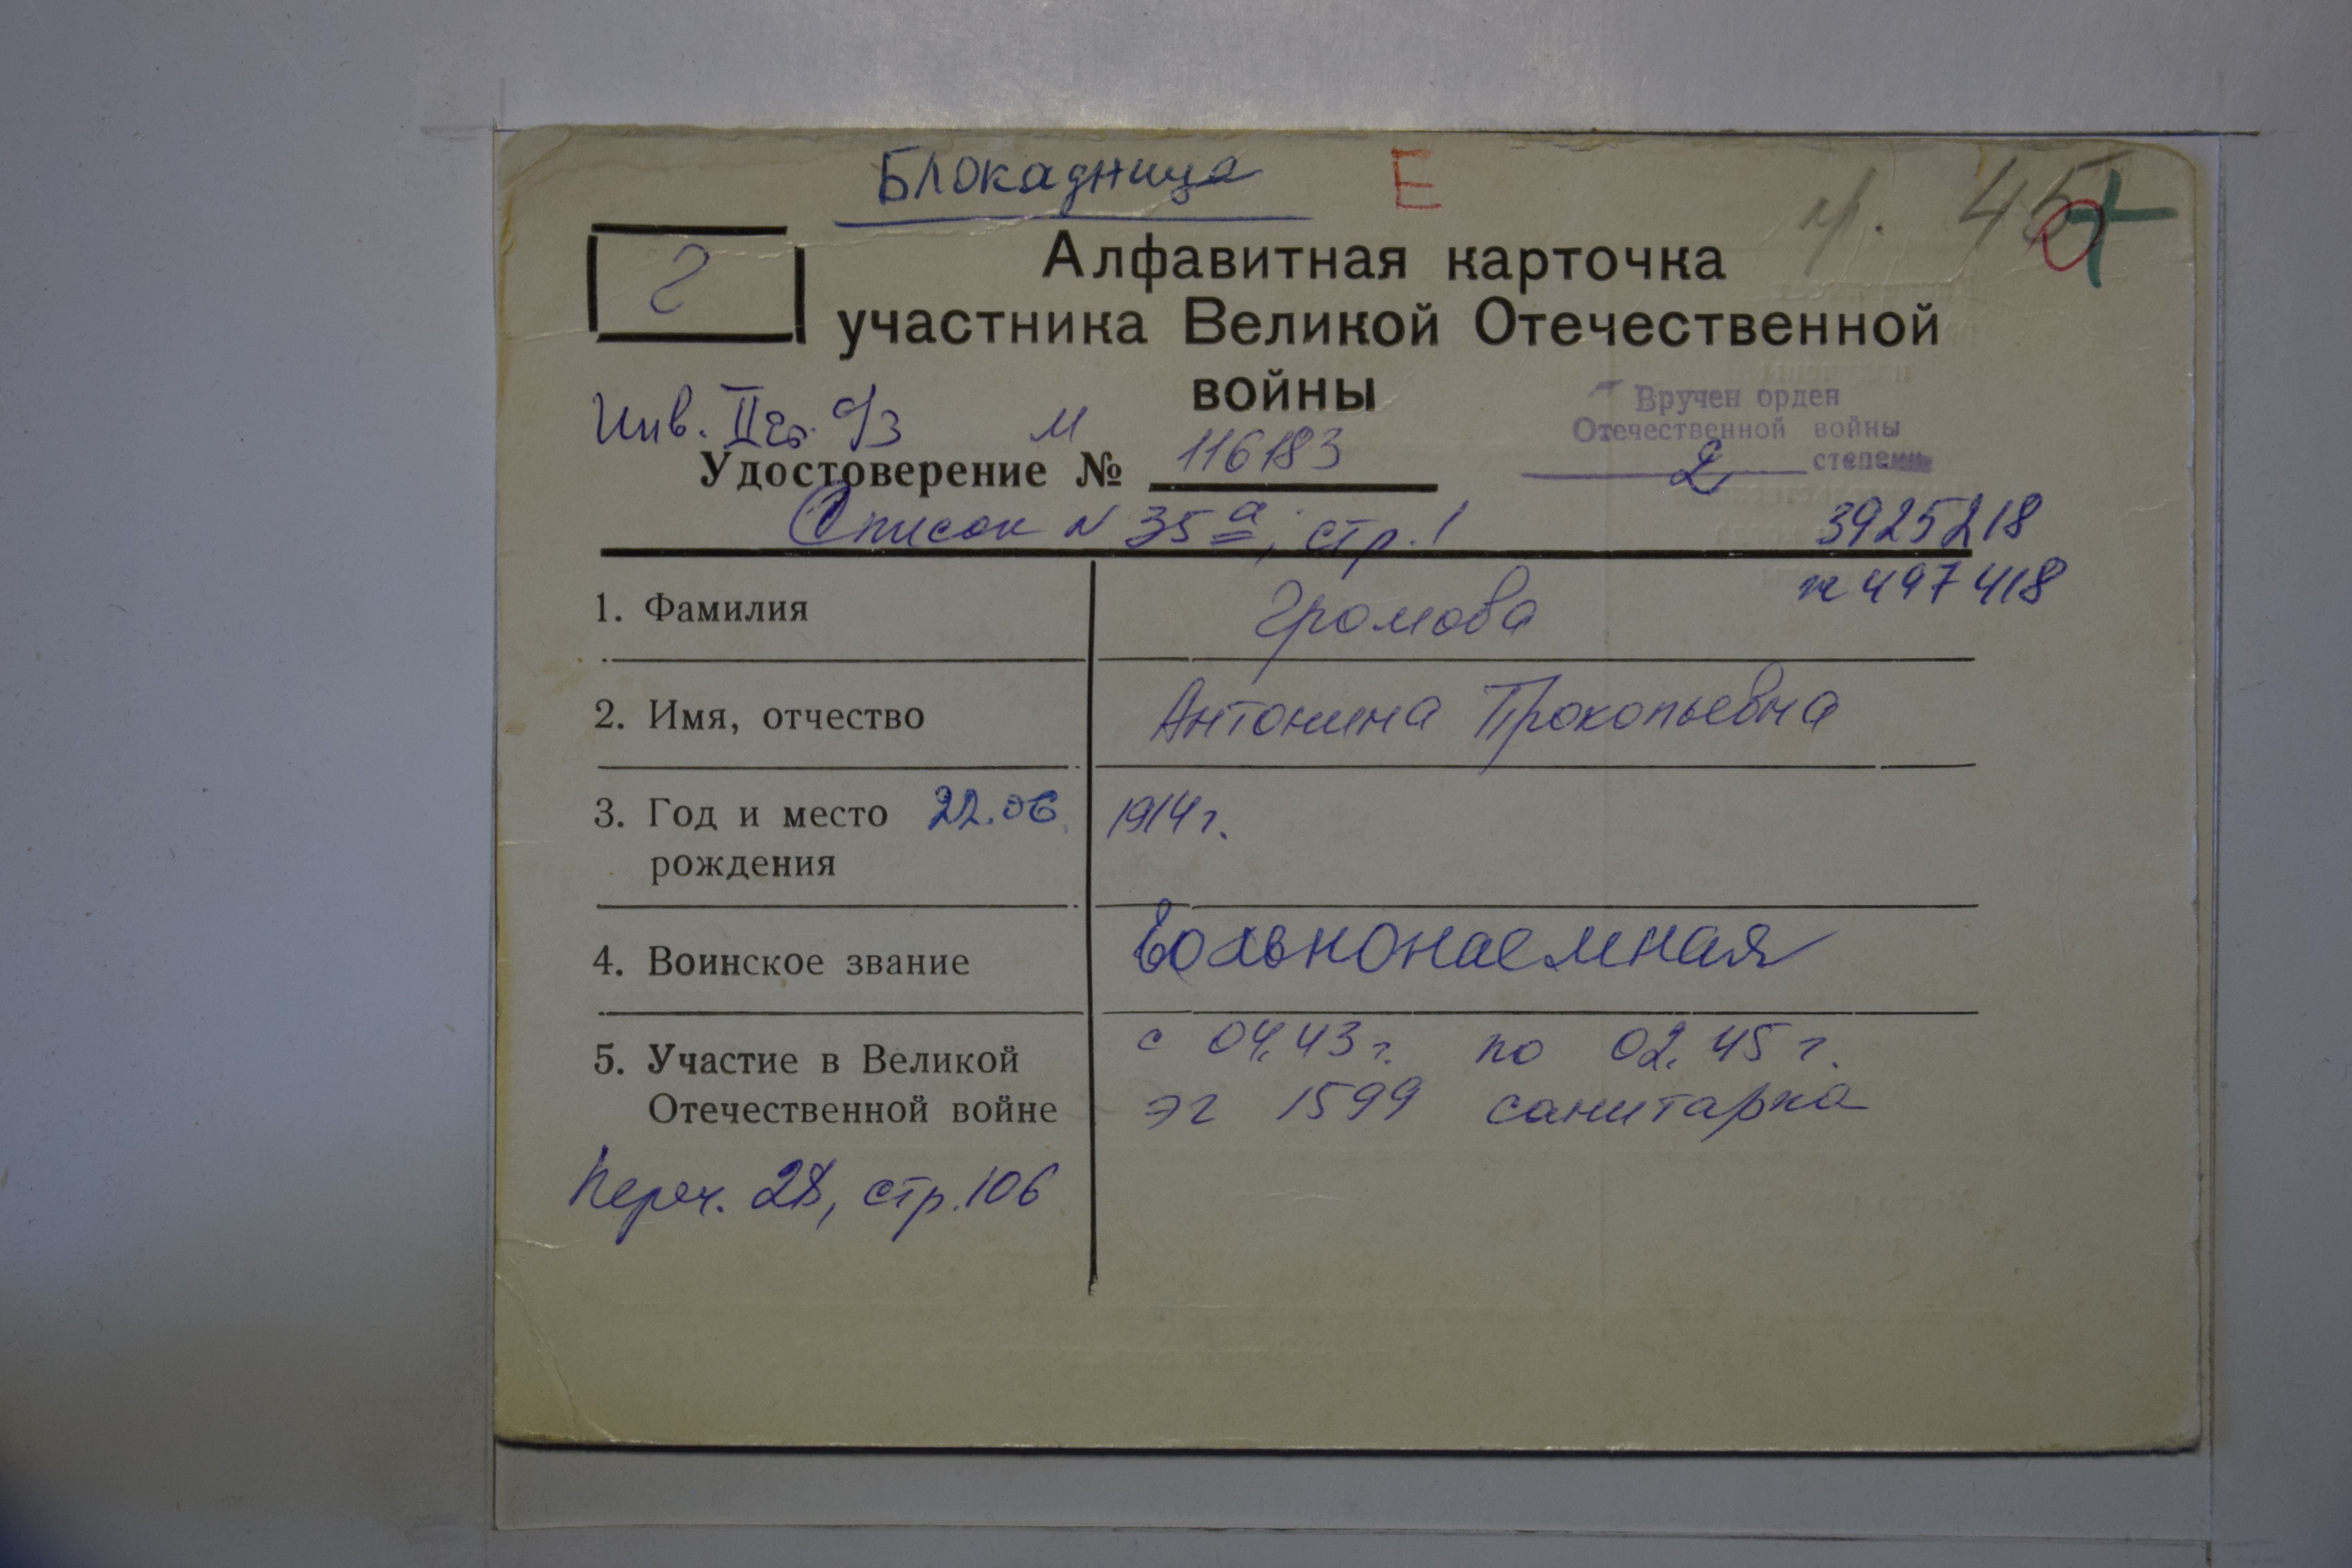 Блокадница Е
г
Алфавитная карточка
участника Великой Отечественной
войны
Инв. II гр. о/з М
Вручен орден
Отечественной войны
2 степени
Удостоверение № 116183
Список N 35а, стр. 1
3925218
1. Фамилия Громова
497418
2. Имя, отчество Антонина Прокопьевна
3. Год и место 22.06 1914 г.
рождения
4. Воинское звание Вольнонаемная
5. Участие в Великой с 04.43 г. по 02.45 г.
Отечественной войне эг 1599 санитарка
Переч. 28, стр. 106